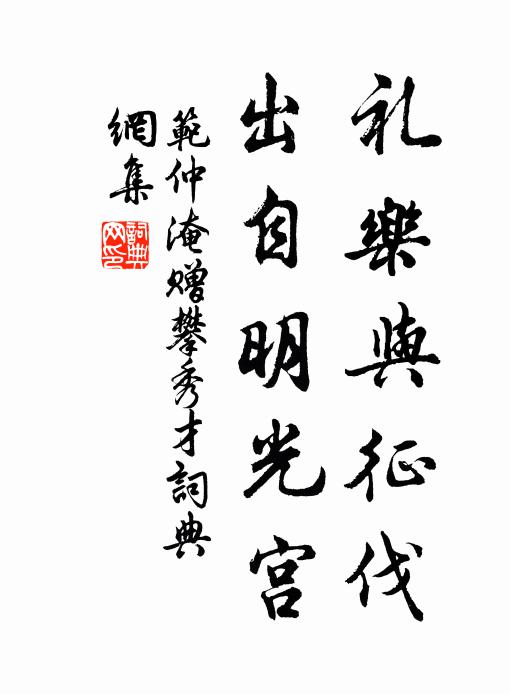 礼樂與征伐
出自明光宮
範仲淹赠攀秀才詞典
網集
詞典
网印